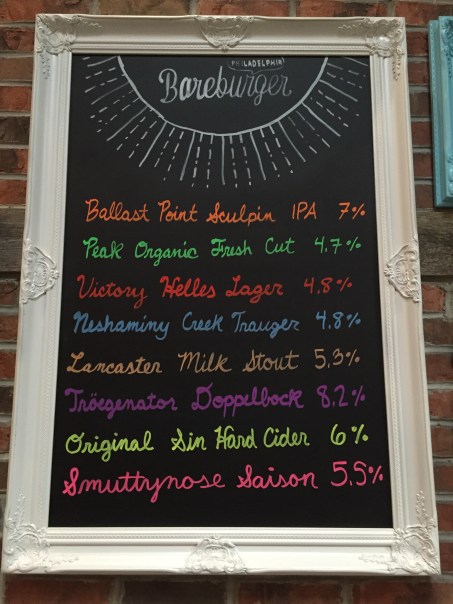 PHILADELPHIA
Bareburger
Ballast Point Sculpin IPA 7%
Peak Organic Fresh Cut 4.7%
Victory Helles Lager 4.8%
Neshaminy Creek Trauger 4.8%
Lancaster Milk Stout 5.3%
Tröegenator Doppelbock 8.2%
Original Sin Hard Cider 6%
Smuttynose Saison 5.5%